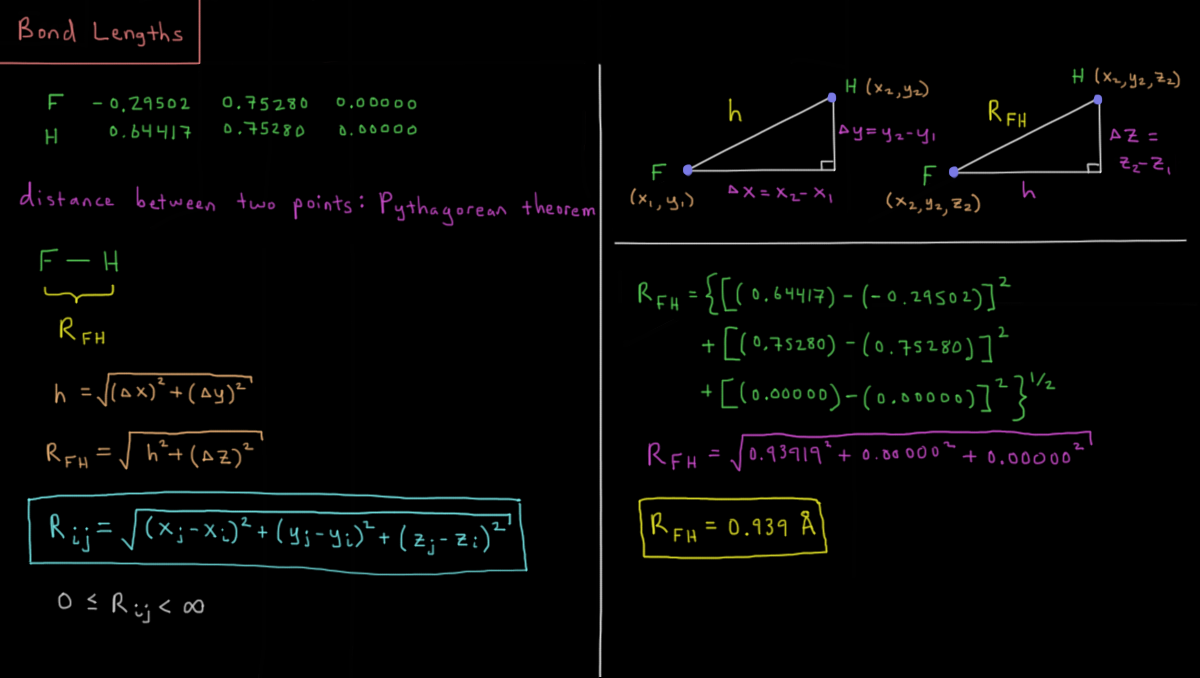 Bond Lengths
F -0.29502 0.75280 0.00000
H 0.64417 0.75280 0.00000
distance between two points: Pythagorean theorem
F — H
R_FH
h = √((Δx)² + (Δy)²)
R_FH = √(h² + (Δz)²)
R_ij = √((x_j - x_i)² + (y_j - y_i)² + (z_j - z_i)²)
0 ≤ R_ij < ∞
H (x₂, y₂)
h
Δy = y₂ - y₁
F
Δx = x₂ - x₁
(x₁, y₁)
H (x₂, y₂, z₂)
R_FH
Δz =
z₂ - z₁
F
h
(x₂, y₂, z₂)
R_FH = {[(0.64417) - (-0.29502)]²
+ [(0.75280) - (0.75280)]²
+ [(0.00000) - (0.00000)]²}^1/2
R_FH = √(0.93919² + 0.00000² + 0.00000²)
R_FH = 0.939 Å